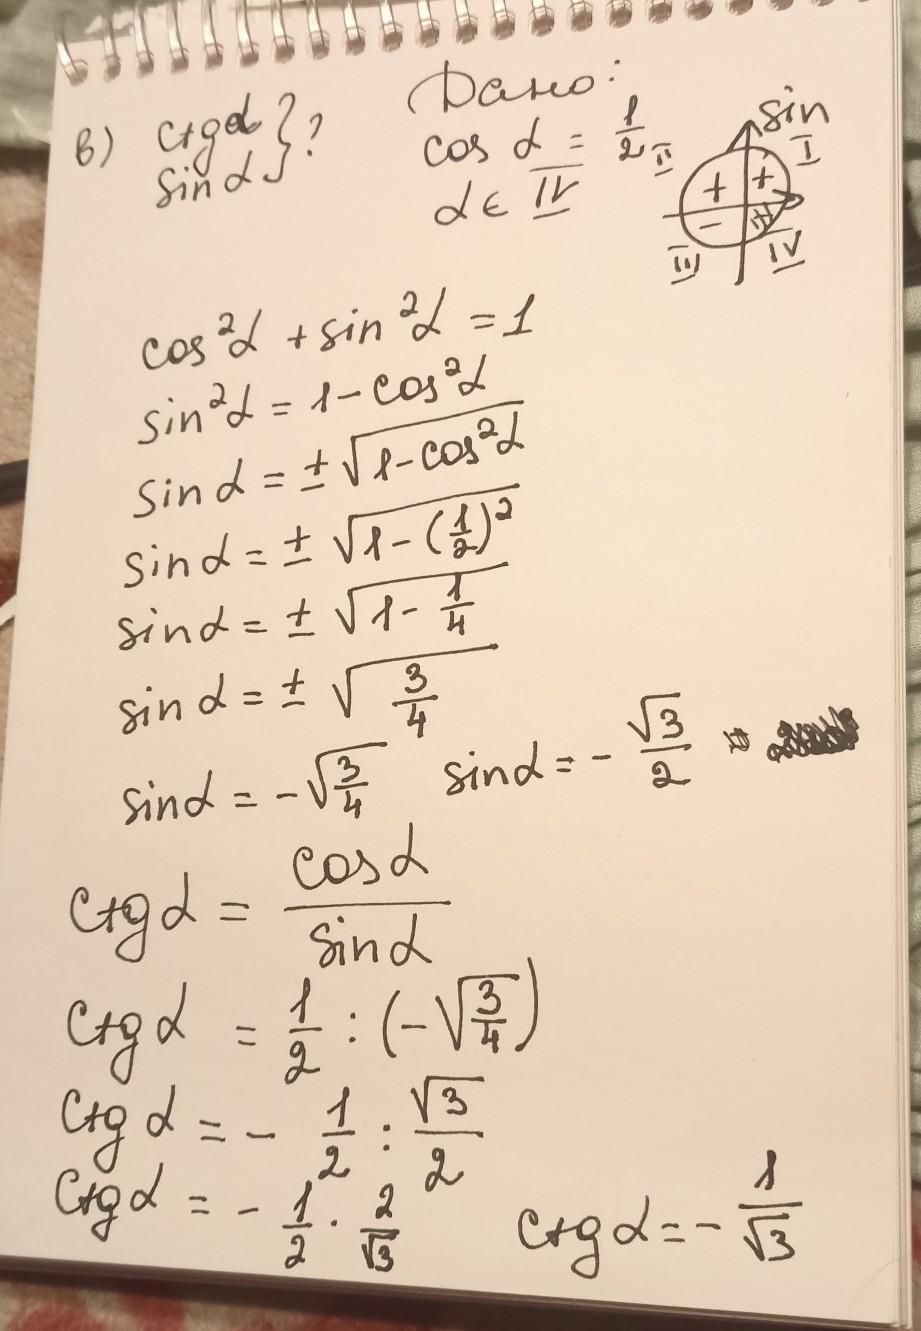 в) ctgα } ?
sinα
Дано:
cos α = 1/2
α ∈ IV
sin
II I
+ +
−
III IV
cos²α + sin²α = 1
sin²α = 1 − cos²α
sin α = ± √(1 − cos²α)
sin α = ± √(1 − (1/2)²)
sin α = ± √(1 − 1/4)
sin α = ± √(3/4)
sin α = − √(3/4) sin α = − √3/2
ctg α = cosα/sinα
ctg α = 1/2 : (− √(3/4))
ctg α = − 1/2 : √3/2
ctg α = − 1/2 · 2/√3 ctg α = − 1/√3